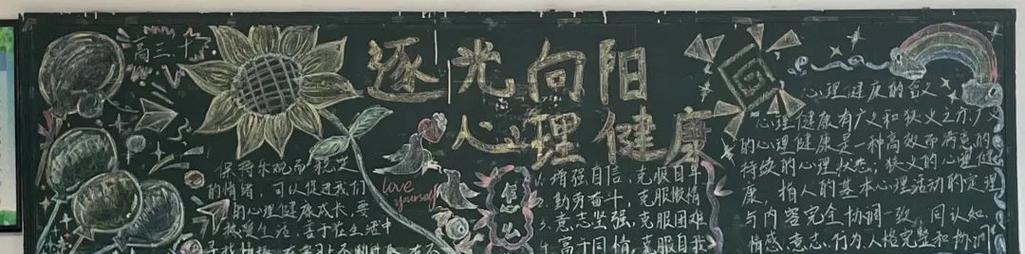 高三十
逐光向阳
心理健康
保持乐观而稳定
的情绪，可以促进我们
的心理健康成长，要
热爱生活，善于在生活中
love
yourself
1.增强自信，克服自卑
2.勤劳奋斗，克服懒惰
3.意志坚强，克服困难
4.富于同情，克服自我
心理健康的含义
心理健康有广义和狭义之分，广义
的心理健康是一种高效而满意的
持续的心理状态，狭义的心理健
康，指人的基本心理活动的定理
与内容完全协调一致，同认知、
情感、意志、行为人格完整和协调